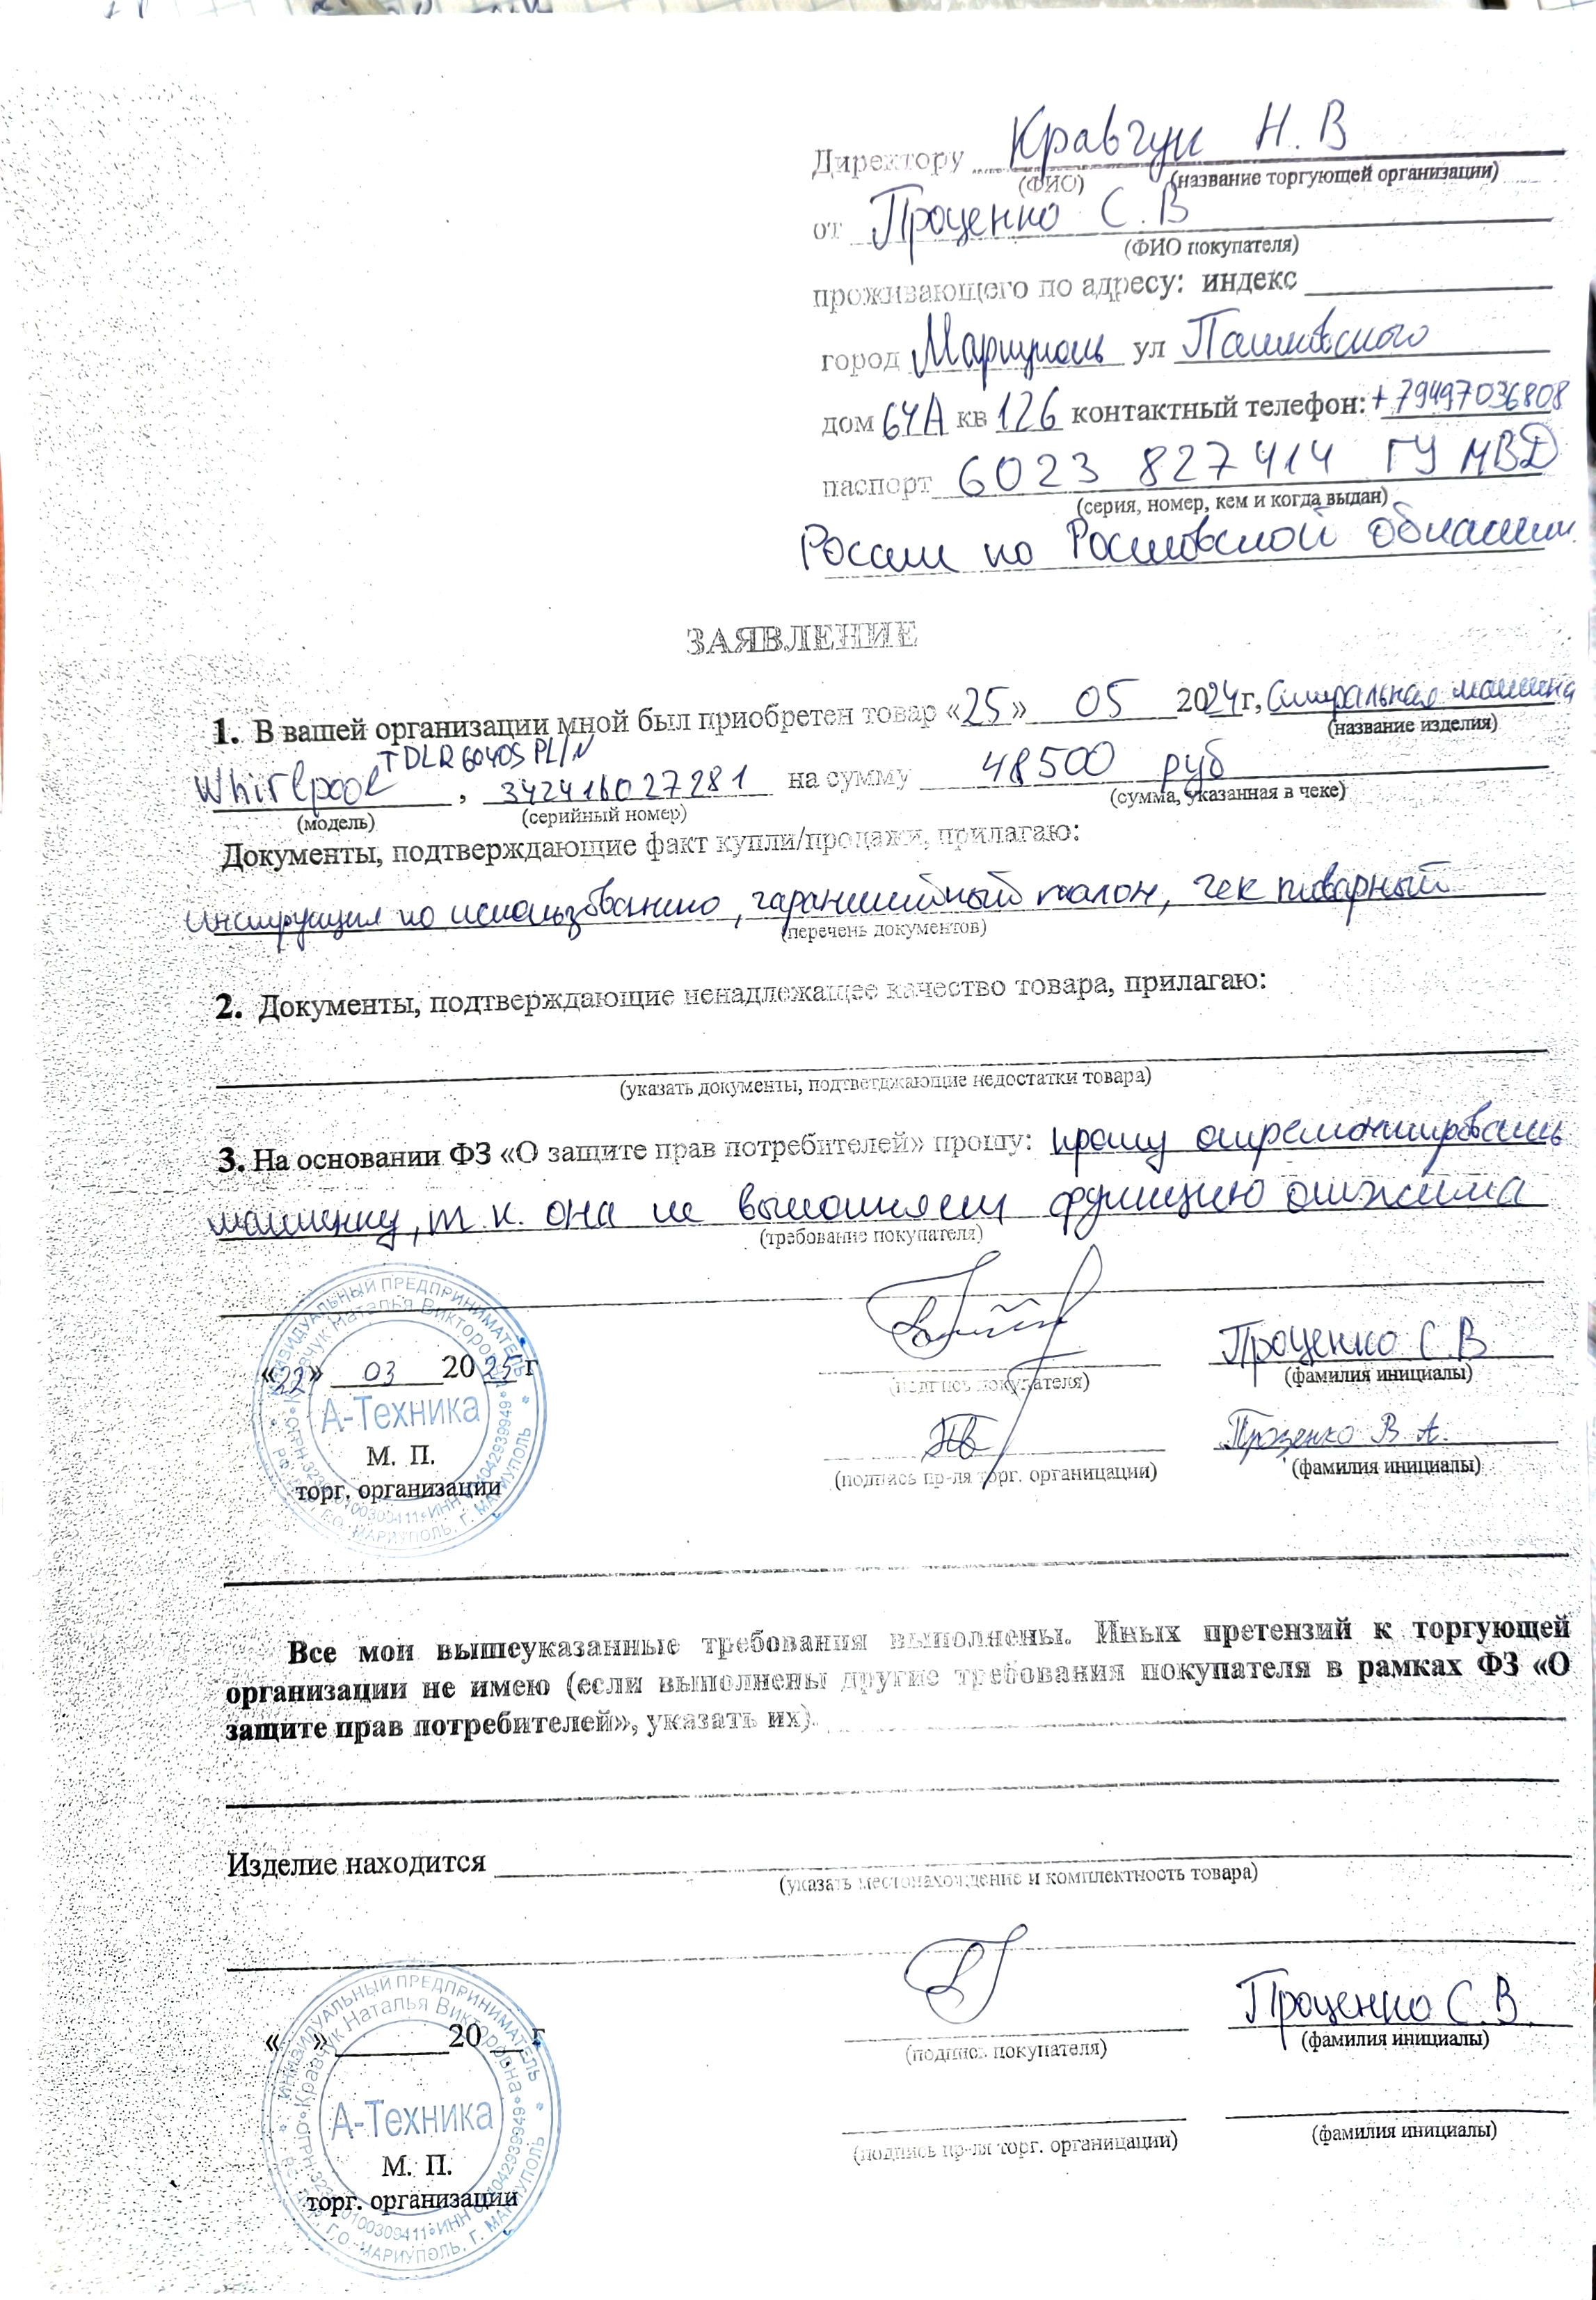 Директору Кравчук Н. В
(ФИО) (название торгующей организации)
от Проценко С. В
(ФИО покупателя)
проживающего по адресу: индекс
город Мариуполь ул Пашковского
дом 64А кв 126 контактный телефон: +79497036808
паспорт 6023 827414 ГУ МВД
(серия, номер, кем и когда выдан)
России по Ростовской области
ЗАЯВЛЕНИЕ
1. В вашей организации мной был приобретен товар «25» 05 2024г, Стиральная машина
(название изделия)
Whirlpool TDLR6040S PL/N, 342416027281 на сумму 48500 руб
(модель) (серийный номер) (сумма, указанная в чеке)
Документы, подтверждающие факт купли/продажи, прилагаю:
инструкция по использованию, гарантийный талон, чек товарный
(перечень документов)
2. Документы, подтверждающие ненадлежащее качество товара, прилагаю:
(указать документы, подтветджающие недостатки товара)
3. На основании ФЗ «О защите прав потребителей» прошу: прошу отремонтировать
машинку, т.к. она не выполняет функцию отжима
(требование покупателя)
ИНДИВИДУАЛЬНЫЙ ПРЕДПРИНИМАТЕЛЬ
Кравчук Наталья Викторовна
«22» 03 2025г Проценко С.В
(подпись покупателя) (фамилия инициалы)
А-Техника
Проценко В. А.
М. П. (подпись пр-ля торг. органицации) (фамилия инициалы)
торг. организации
Г.О. МАРИУПОЛЬ, Г. МАРИУПОЛЬ
Все мои вышеуказанные требования выполнены. Иных претензий к торгующей
организации не имею (если выполнены другие требования покупателя в рамках ФЗ «О
защите прав потребителей», указать их).
Изделие находится
(указать местонахождение и комплектность товара)
ИНДИВИДУАЛЬНЫЙ ПРЕДПРИНИМАТЕЛЬ
Кравчук Наталья Викторовна
« » 20 г Проценко С.В.
(подпись покупателя) (фамилия инициалы)
А-Техника
М. П. (подпись пр-ля торг. органицации) (фамилия инициалы)
торг. организации
Г.О. МАРИУПОЛЬ, Г. МАРИУПОЛЬ